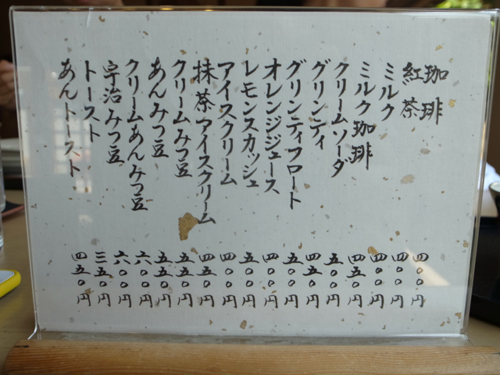 珈琲 四〇〇円
紅茶 四〇〇円
ミルク 四〇〇円
ミルク珈琲 四五〇円
クリームソーダ 五〇〇円
グリンティ 四五〇円
グリンティフロート 五〇〇円
オレンジジュース 四〇〇円
レモンスカッシュ 五〇〇円
アイスクリーム 四〇〇円
抹茶アイスクリーム 四五〇円
クリームみつ豆 五五〇円
あんみつ豆 五五〇円
クリームあんみつ豆 六〇〇円
宇治みつ豆 六〇〇円
トースト 三五〇円
あんトースト 四五〇円